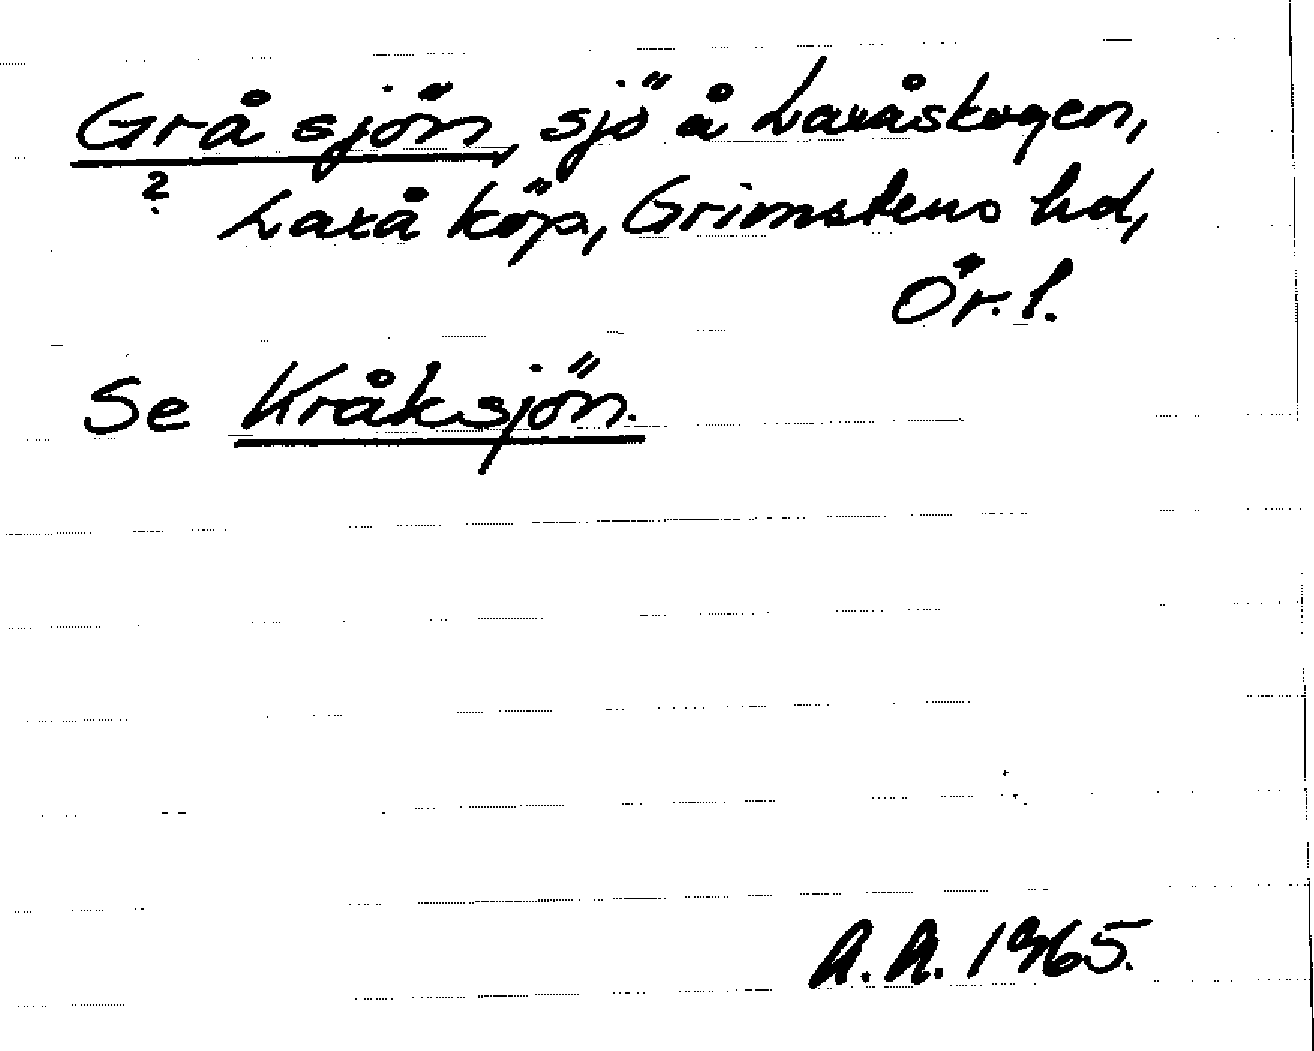 Grå sjön, sjö å Laxåskogen,
? Laxå köp, Grimstens hd,
Ör. l.
Se Kråksjön.
A.A. 1965.